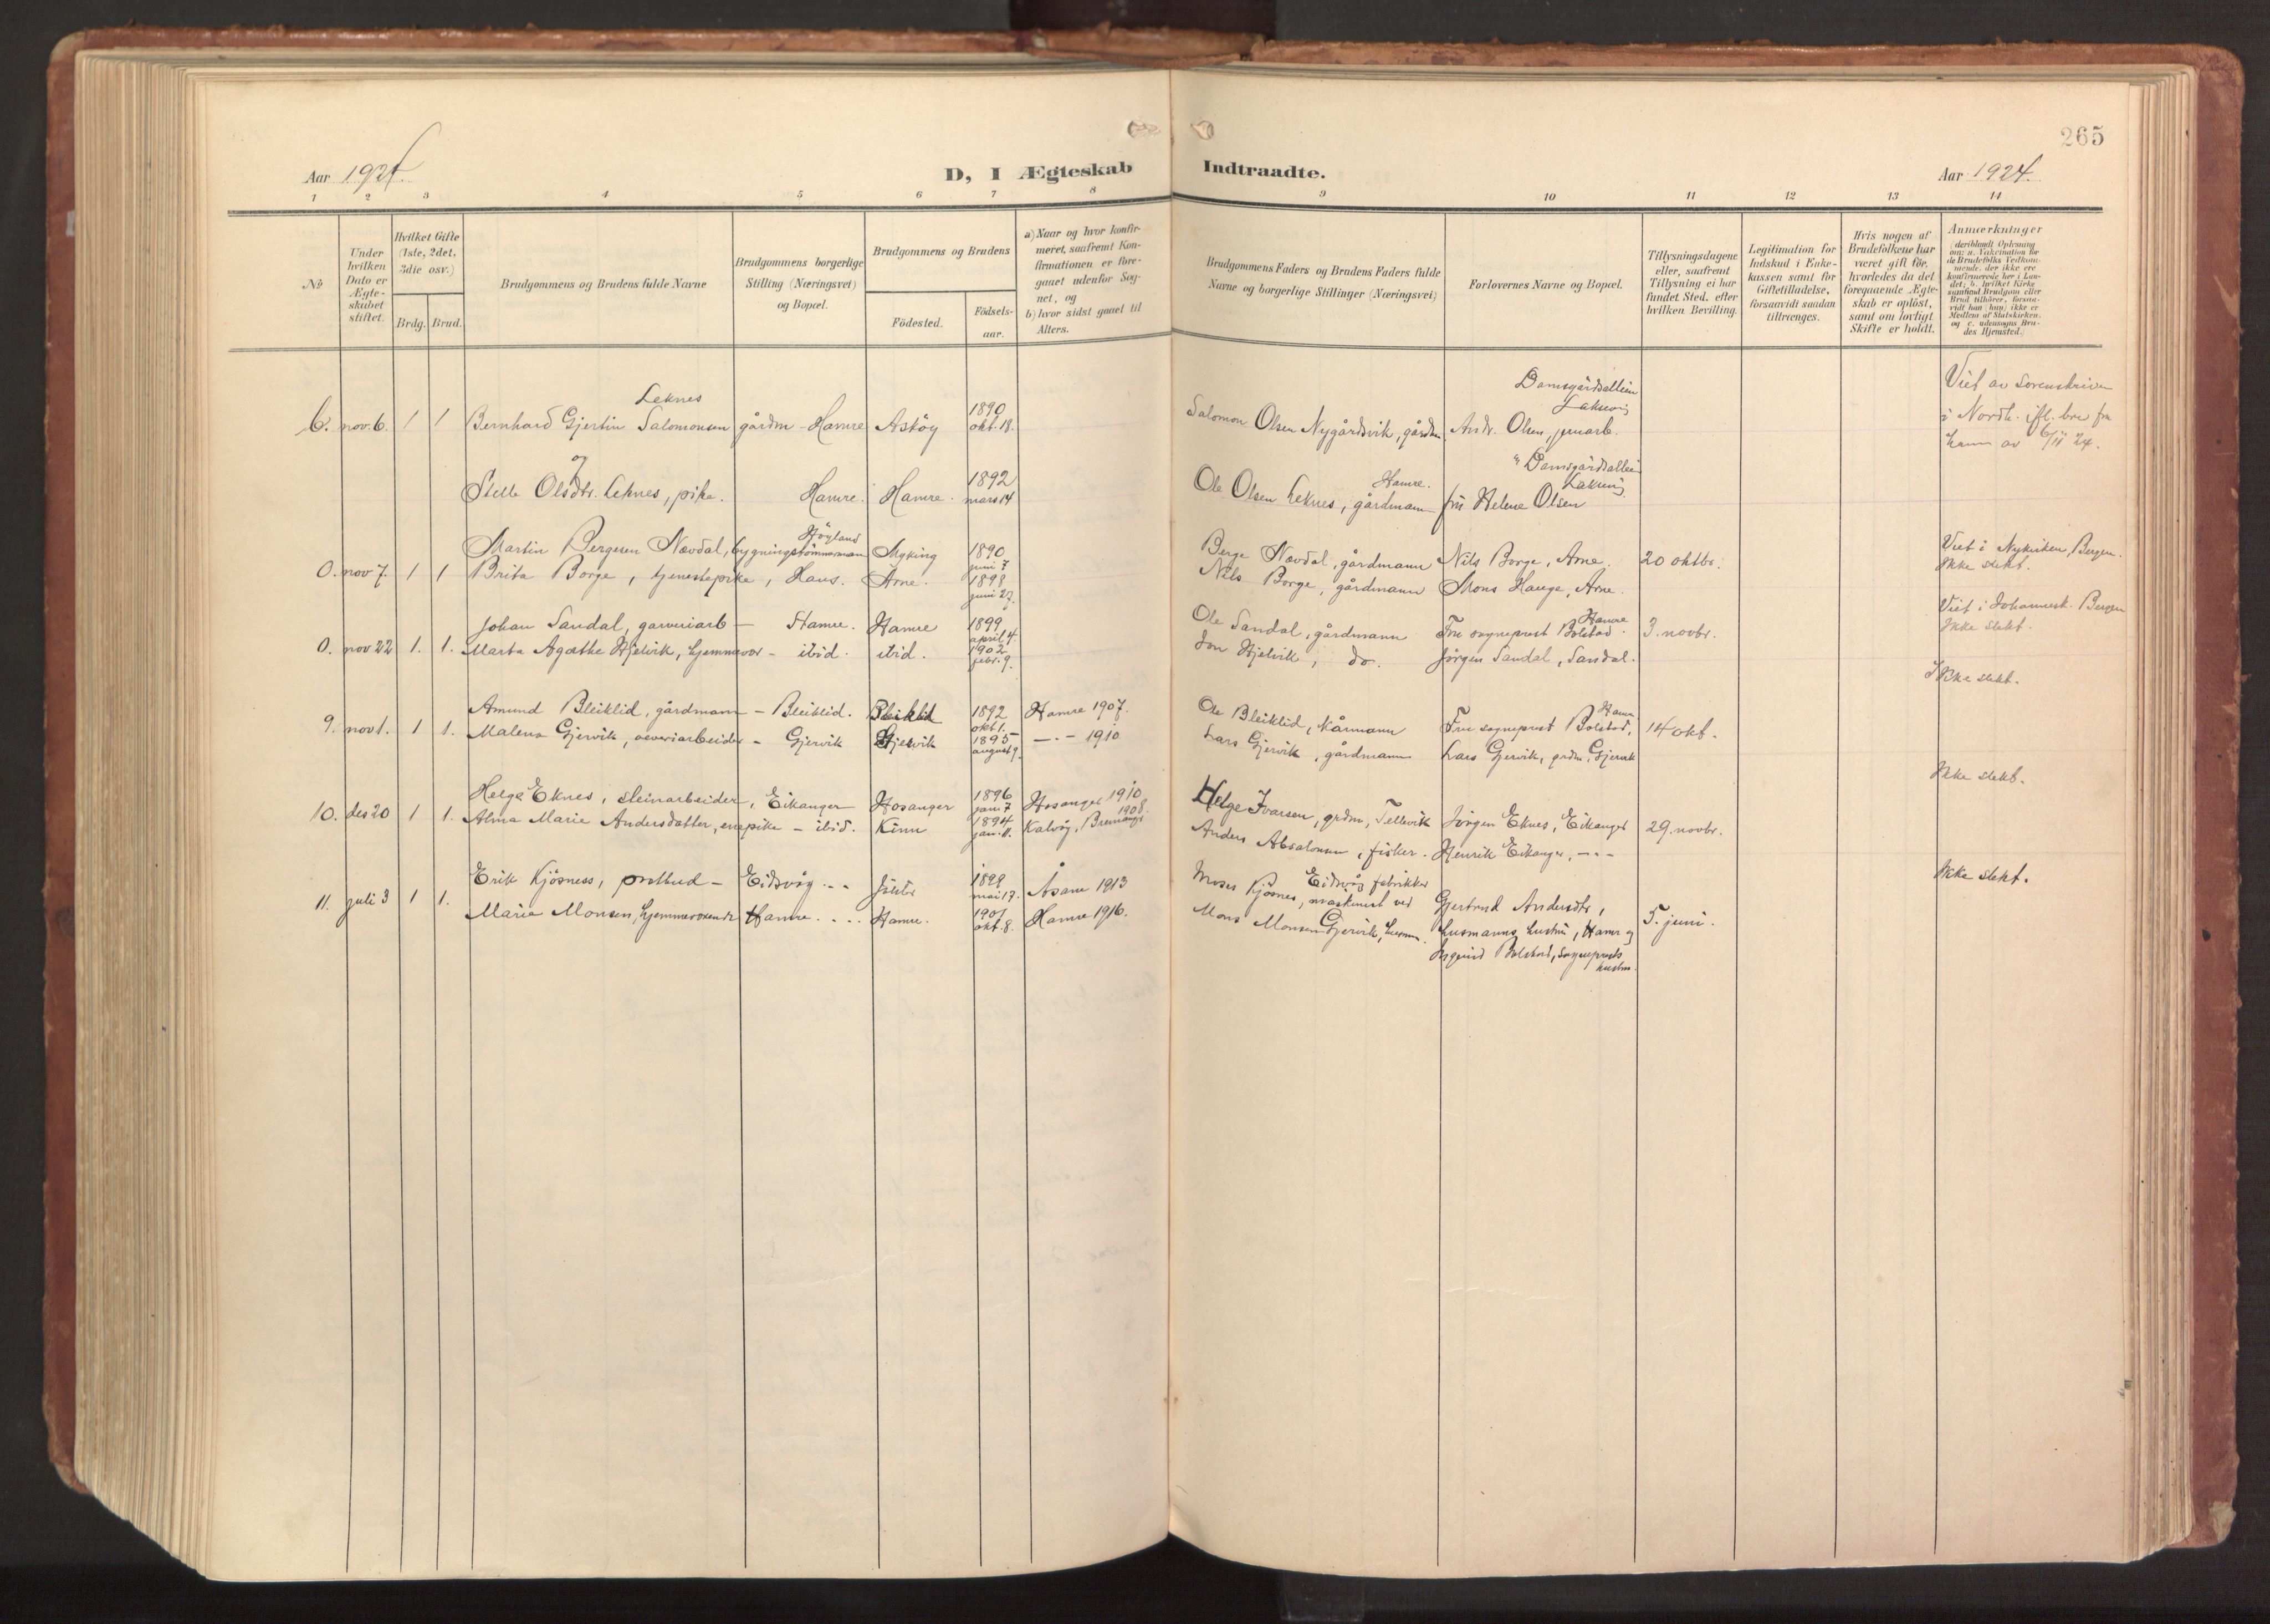 265
Aar 1924.
D, I Ægteskab Indtraadte.
Aar 1924.
1 2 3 4 5 6 7 8 9 10 11 12 13 14
No
Under hvilken Dato er Ægteskabet stiftet.
Hvilket Gifte (1ste, 2det, 3die osv.)
Brdg. Brud.
Brudgommens og Brudens fulde Navne
Brudgommens borgerlige Stilling (Næringsvei) og Bopæl.
Brudgommens og Brudens
Födested.
Födsels-aar.
a) Naar og hvor konfirmeret, saafremt Konfirmationen er foregaaet udenfor Sognet, og
b) hvor sidst gaaet til Alters.
Brudgommens Faders og Brudens Faders fulde Navne og borgerlige Stillinger (Næringsvei)
Forlovernes Navne og Bopæl.
Tillysningsdagene eller, saafremt Tillysning ei har fundet Sted, efter hvilken Bevilling.
Legitimation for Indskud i Enkekassen samt for Giftetilladelse, forsaavidt saadan tiltrænges.
Hvis nogen af Brudefolkene har været gift för, hvorledes da det foregaaende Ægteskab er oplöst, samt om lovligt Skifte er holdt.
Anmærkninger (deriblandt Oplysning om: a. Vakcination for de Brudefolks Vedkommende, der ikke ere konfirmerede her i Landet; b. hvilket Kirkesamfund Brudgom eller Brud tilhører, forsaavidt han (hun) ikke er Medlem af Statskirken; og c. udensogns Brudes Hjemsted.)
Leknes
6. nov. 6. 1 1 Bernhard Gjertin Salomonsen gårdm - Hamre Askøy 1890 okt. 18. Salomon Olsen Nygårdsvik, gårdm. Andr. Olsen, jernarb. Damsgårdsalleen Laksevåg
Viet av Sorenskriveren i Nordh. ifl. brev fra ham av 6/11 24.
og
Olsdtr. Leknes, pike. Hamre. Hamre. 1892 mars 14 Ole Olsen Leknes, gårdmann Hamre. fru Helene Olsen Damsgårdsalleen Laksevåg
0. nov 7. 1 1 Martin Bergesen Nævdal, bygningstømmermann Höyland Myking 1890 juni 7 Berge Nævdal, gårdmann Nils Borge, Arne. 20 oktbr. Viet i Nykirken, Bergen. Ikke slekt.
Brita Borge, tjenestepike, Haus. Arne. 1898 juni 27. Nils Borge, gårdmann Mons Hauge, Arne.
0. nov 22 1. 1. Johan Sandal, garveriarb - Hamre. Hamre 1899 april 4. Ole Sandal, gårdmann Fru sogneprest Bolstad Hamre. 3. novbr. Viet i Johannesk. Bergen Ikke slekt.
Marta Agathe Hjelvik, hjemmevær - ibid. ibid. 1902 febr. 9. Jon Hjelvik, do. Jörgen Sandal, Sandal.
9. nov 1. 1 1. Amund Bleiklid, gårdmann - Bleiklid. Bleiklid 1892 okt 1. Hamre 1907. Ole Bleiklid, kårmann Fru sogneprest Bolstad, Hamre 14 okt. Ikke slekt.
Malena Gjervik, veveriarbeider - Gjervik Gjervik 1895 august 9. -.- 1910 Lars Gjervik, gårdmann Lars Gjervik, grdm, Gjervik
10. des 20 1 1. Helge Eknes, steinarbeider, Eikanger Hosanger 1896 juni 7 Hosanger 1910 Helge Ivarsen, grdm, Tellevik Jörgen Eknes, Eikanger 29. novbr. Ikke slekt.
Alma Marie Andersdatter, enepike - ibid. Kinn 1894 Kalvåg, Bremanger 1908. Anders Absalonsen, fisker. Henrik Eikanger, -.-
11. juli 3 1 1. Erik Kjösness, postbud - Eidsvåg -.- Jölster 1899 mai 17. Åsane 1913 Moses Kjösnes, maskinist ved Eidsvåg fabrikker Gjertrud Andersdtr, husmanns hustru, Hamre og Ingerid Bolstad, sogneprests hustru. 5. juni. Ikke slekt.
Marie Monsen, hjemmeværende Hamre. Hamre. 1901 okt. 8. Hamre 1916. Mons Monsen Gjervik, husm.